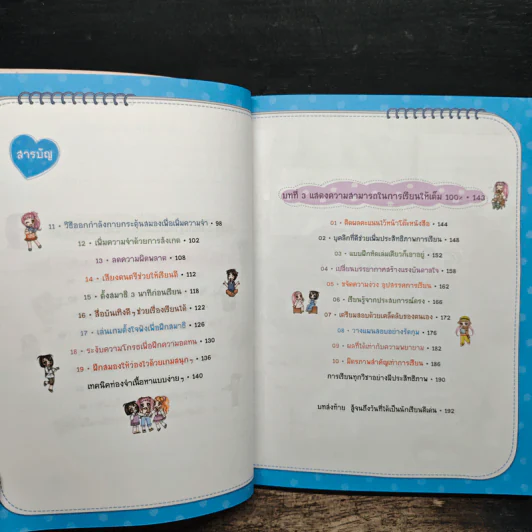 สารบัญ
11 • วิธีออกกำลังกายกระตุ้นสมองเพื่อเพิ่มความจำ • 98
12 • เพิ่มความจำด้วยการสังเกต • 102
13 • ลดความผิดพลาด • 108
14 • เสียงดนตรีช่วยให้เรียนดี • 112
15 • ตั้งสมาธิ 3 นาทีก่อนเรียน • 118
16 • สื่อบันเทิงดีๆ ช่วยเรื่องเรียนได้ • 122
17 • เล่นเกมตั้งใจฟังเพื่อฝึกสมาธิ • 126
18 • ระงับความโกรธเพื่อฝึกความอดทน • 130
19 • ฝึกสมองให้ว่องไวด้วยเกมสนุกๆ • 136
เทคนิคท่องจำเนื้อหาแบบง่ายๆ • 140
บทที่ 3 แสดงความสามารถในการเรียนให้เต็ม 100% • 143
01 • ติดผลคะแนนไว้หน้าโต๊ะหนังสือ • 144
02 • บุคลิกที่ดีช่วยเพิ่มประสิทธิภาพการเรียน • 148
03 • แบบฝึกหัดเล่มเดียวก็เอาอยู่ • 152
04 • เปลี่ยนบรรยากาศสร้างแรงบันดาลใจ • 158
05 • ขจัดความง่วง อุปสรรคการเรียน • 162
06 • เรียนรู้จากประสบการณ์ตรง • 166
07 • เตรียมสอบด้วยเคล็ดลับของตนเอง • 172
08 • วางแผนสอบอย่างรัดกุม • 176
09 • ผลที่ได้เท่ากับความพยายาม • 182
10 • มิตรภาพสำคัญเท่าการเรียน • 186
การเรียนทุกวิชาอย่างมีประสิทธิภาพ • 190
บทส่งท้าย สู้จนถึงวันที่ได้เป็นนักเรียนดีเด่น • 192